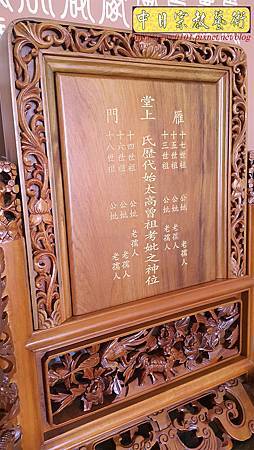 中日宗教藝術
0101.pixnet.net/blog
雁
十七世祖 公妣 老孺人
十五世祖 公妣 老孺人
十三世祖 公妣
堂上 氏歷代始太高曾祖考妣之神位
門
十四世祖 公妣 老孺人
十六世祖 公妣 老孺人
十八世祖 公妣 老孺人